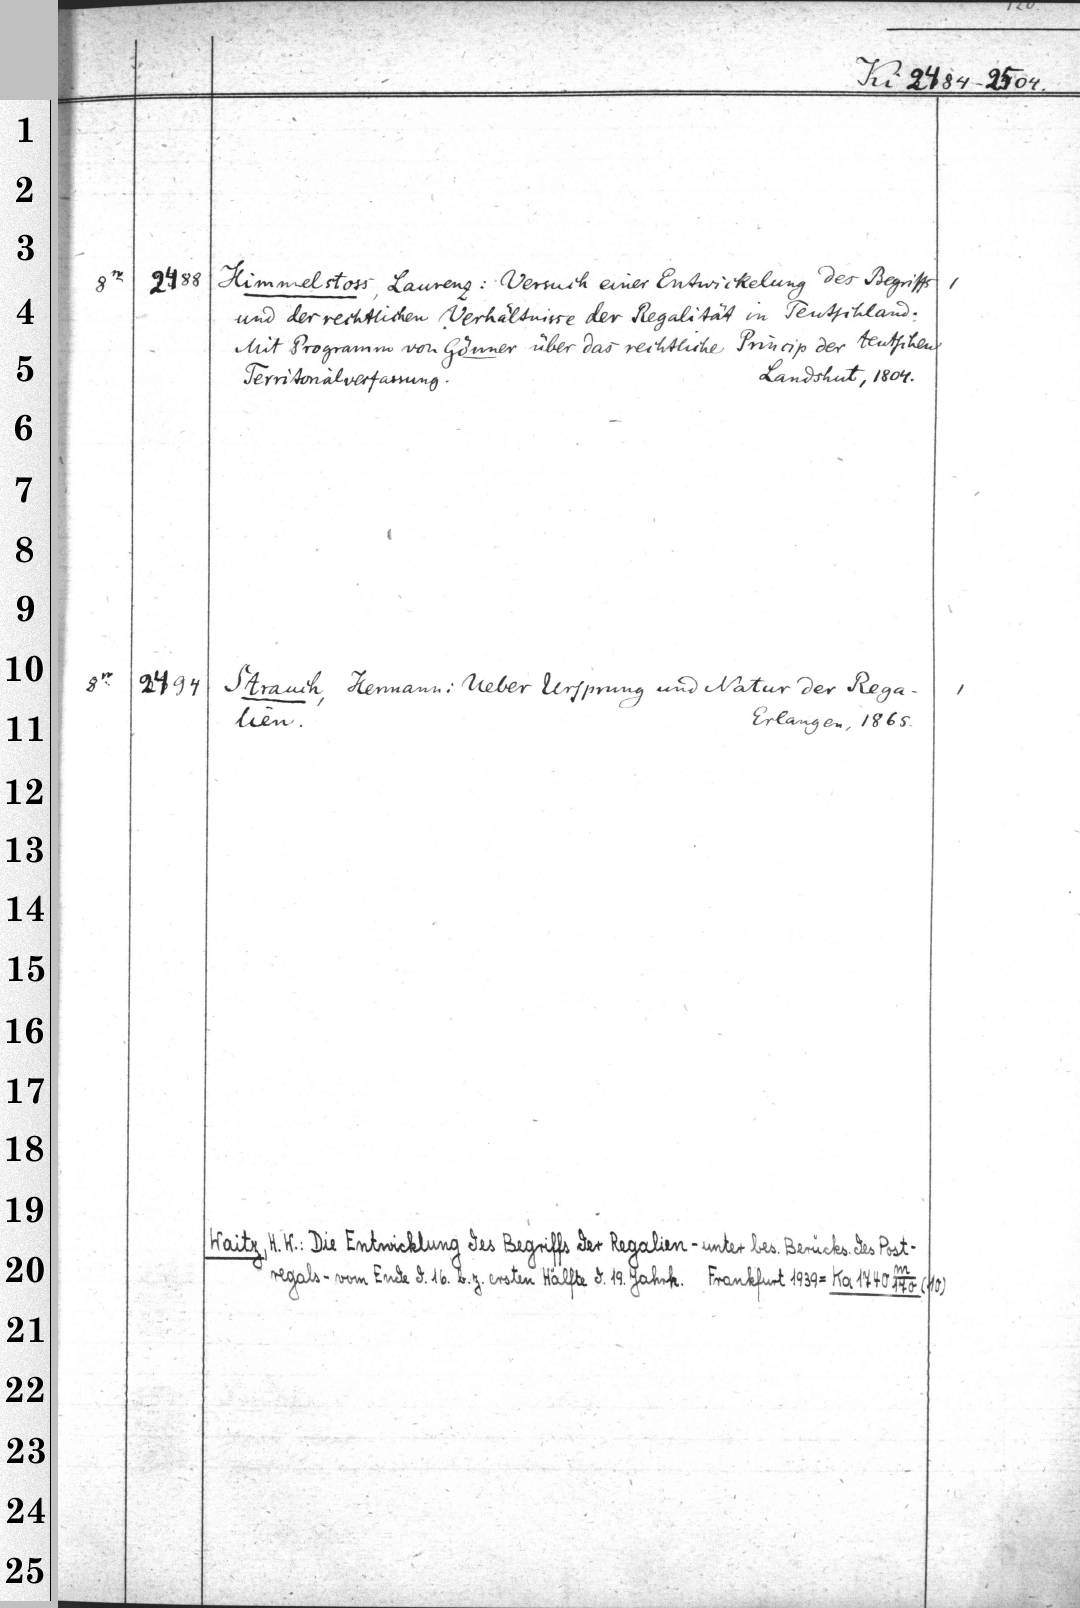 Ki 2484-2504.
1
2
3
8º 2488 Himmelstoss, Laurenz: Versuch einer Entwickelung des Begriffs 1
4 und der rechtlichen Verhältnisse der Regalität in Teutschland.
Mit Programm von Gönner über das rechtliche Princip der teutschen
5 Territorialverfassung. Landshut, 1804.
6
7
8
9
10 8º 2494 Strauch, Hermann: Ueber Ursprung und Natur der Rega- 1
11 lien. Erlangen, 1865.
12
13
14
15
16
17
18
19
Waitz, H. W.: Die Entwicklung des Begriffs der Regalien - unter bes. Berücks. des Post-
20 regals - vom Ende d. 16. b. z. ersten Hälfte d. 19. Jahrh. Frankfurt 1939 = Ka 1740 m/170 (10)
21
22
23
24
25